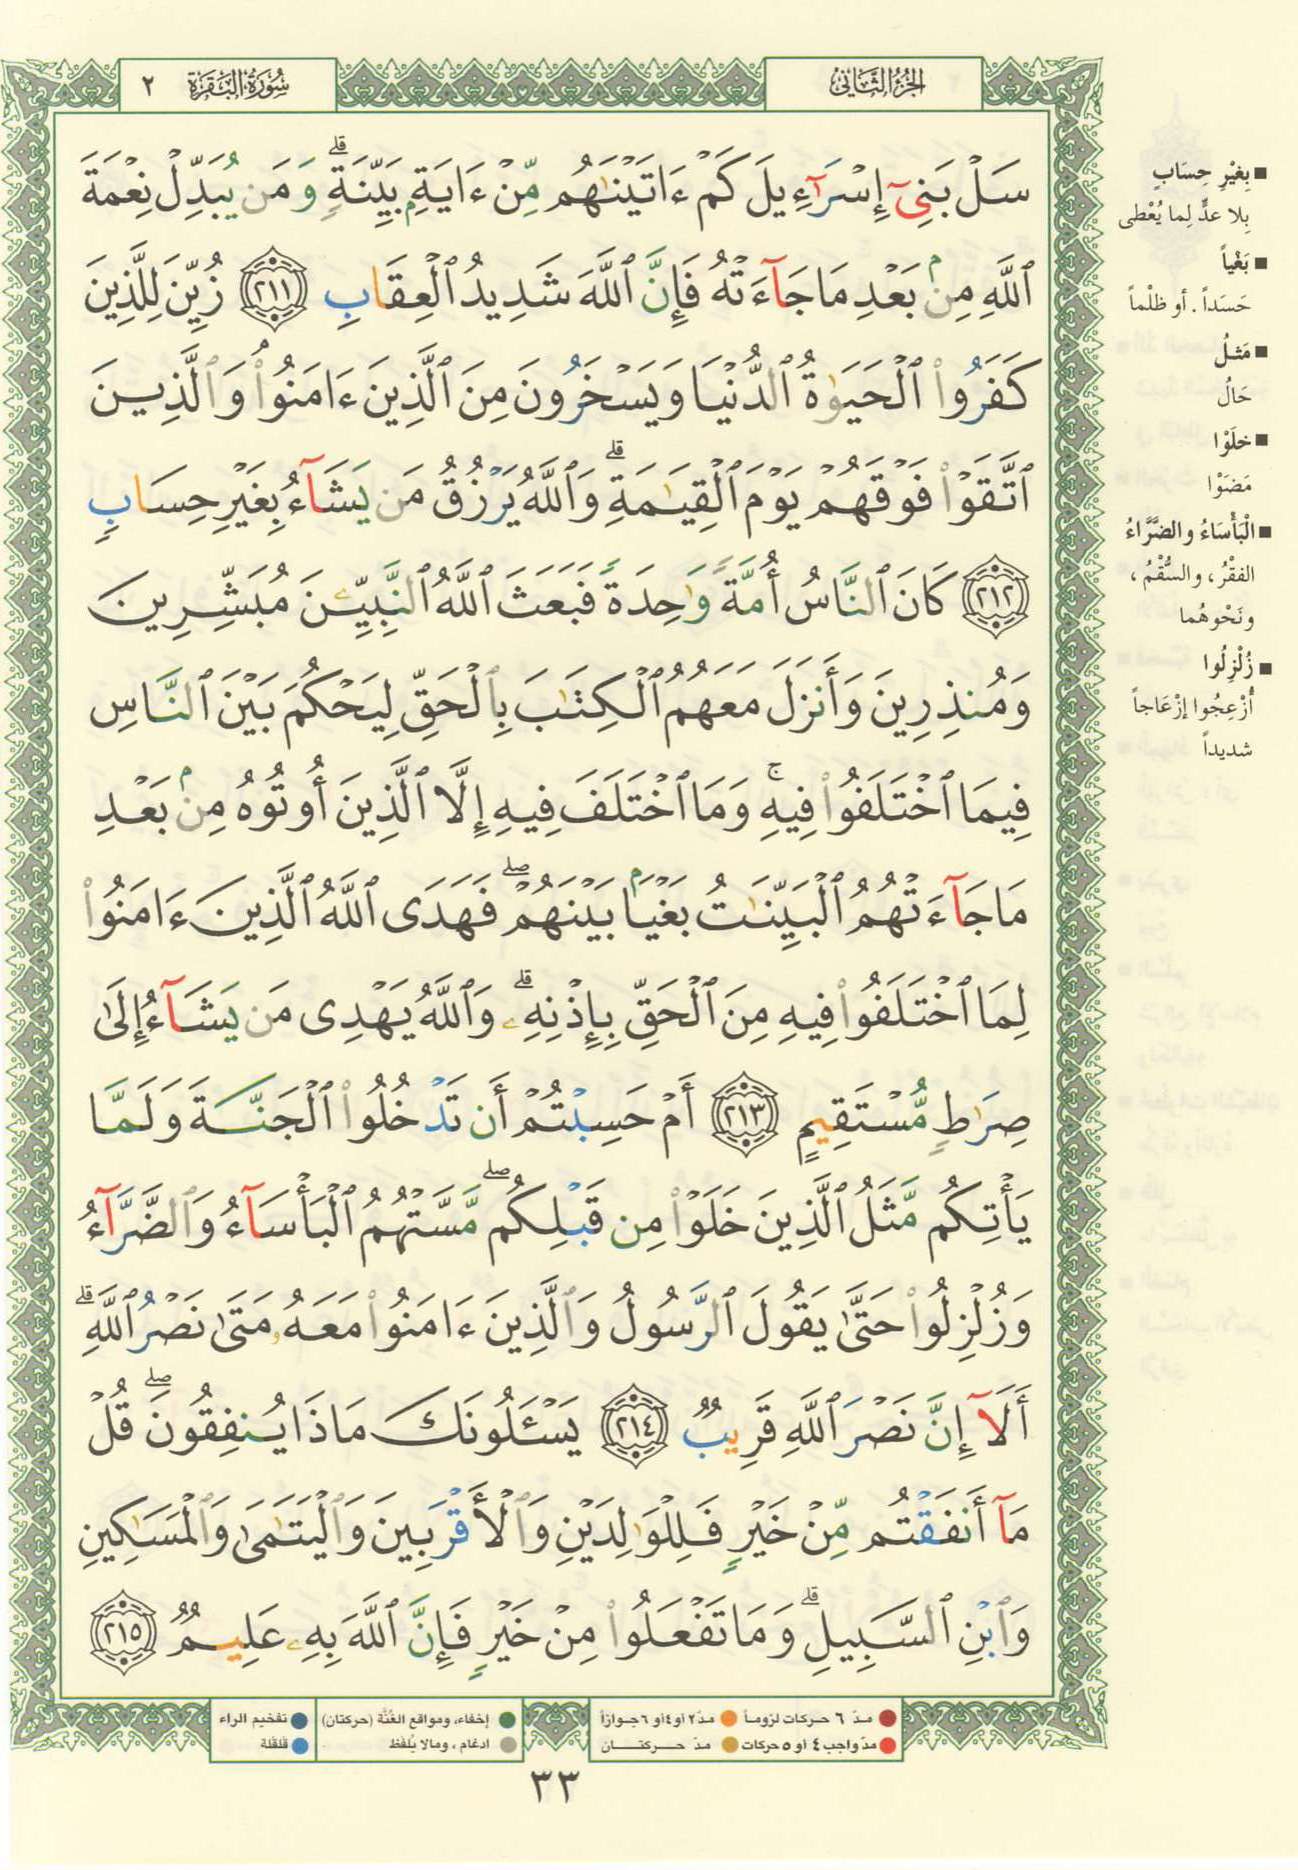 الجزء الثاني
سورة البقرة ٢
سَلْ بَنِىٓ إِسْرَٰٓءِيلَ كَمْ ءَاتَيْنَٰهُم مِّنْ ءَايَةِۭ بَيِّنَةٍۗ وَمَن يُبَدِّلْ نِعْمَةَ
ٱللَّهِ مِنۢ بَعْدِ مَا جَآءَتْهُ فَإِنَّ ٱللَّهَ شَدِيدُ ٱلْعِقَابِ ﴿٢١١﴾ زُيِّنَ لِلَّذِينَ
كَفَرُوا۟ ٱلْحَيَوٰةُ ٱلدُّنْيَا وَيَسْخَرُونَ مِنَ ٱلَّذِينَ ءَامَنُوا۟ۘ وَٱلَّذِينَ
ٱتَّقَوْا۟ فَوْقَهُمْ يَوْمَ ٱلْقِيَٰمَةِۗ وَٱللَّهُ يَرْزُقُ مَن يَشَآءُ بِغَيْرِ حِسَابٍ
﴿٢١٢﴾ كَانَ ٱلنَّاسُ أُمَّةً وَٰحِدَةً فَبَعَثَ ٱللَّهُ ٱلنَّبِيِّـۧنَ مُبَشِّرِينَ
وَمُنذِرِينَ وَأَنزَلَ مَعَهُمُ ٱلْكِتَٰبَ بِٱلْحَقِّ لِيَحْكُمَ بَيْنَ ٱلنَّاسِ
فِيمَا ٱخْتَلَفُوا۟ فِيهِۚ وَمَا ٱخْتَلَفَ فِيهِ إِلَّا ٱلَّذِينَ أُوتُوهُ مِنۢ بَعْدِ
مَا جَآءَتْهُمُ ٱلْبَيِّنَٰتُ بَغْيَۢا بَيْنَهُمْۖ فَهَدَى ٱللَّهُ ٱلَّذِينَ ءَامَنُوا۟
لِمَا ٱخْتَلَفُوا۟ فِيهِ مِنَ ٱلْحَقِّ بِإِذْنِهِۦۗ وَٱللَّهُ يَهْدِى مَن يَشَآءُ إِلَىٰ
صِرَٰطٍ مُّسْتَقِيمٍ ﴿٢١٣﴾ أَمْ حَسِبْتُمْ أَن تَدْخُلُوا۟ ٱلْجَنَّةَ وَلَمَّا
يَأْتِكُم مَّثَلُ ٱلَّذِينَ خَلَوْا۟ مِن قَبْلِكُمۖ مَّسَّتْهُمُ ٱلْبَأْسَآءُ وَٱلضَّرَّآءُ
وَزُلْزِلُوا۟ حَتَّىٰ يَقُولَ ٱلرَّسُولُ وَٱلَّذِينَ ءَامَنُوا۟ مَعَهُۥ مَتَىٰ نَصْرُ ٱللَّهِۗ
أَلَآ إِنَّ نَصْرَ ٱللَّهِ قَرِيبٌ ﴿٢١٤﴾ يَسْـَٔلُونَكَ مَاذَا يُنفِقُونَۖ قُلْ
مَآ أَنفَقْتُم مِّنْ خَيْرٍ فَلِلْوَٰلِدَيْنِ وَٱلْأَقْرَبِينَ وَٱلْيَتَٰمَىٰ وَٱلْمَسَٰكِينِ
وَٱبْنِ ٱلسَّبِيلِۗ وَمَا تَفْعَلُوا۟ مِنْ خَيْرٍ فَإِنَّ ٱللَّهَ بِهِۦ عَلِيمٌ ﴿٢١٥﴾
■ بِغيْرِ حِسَابٍ
بِلا عدٍّ لِما يُعْطى
■ بَغْياً
حَسَداً. أو ظلْماً
■ مَثلُ
حَالُ
■ خلَوْا
مَضَوْا
■ الْبَأْسَاءُ والضَّرَّاءُ
الفقْرُ، والسُّقْمُ،
ونَحْوهُما
■ زُلْزِلُوا
أُزْعِجُوا إزْعَاجاً
شديداً
مدّ ٦ حركات لزوماً ● مدّ ٢ أو ٤ أو ٦ جوازاً ● إخفاء، ومواقع الغُنَّة (حركتان) ● تفخيم الراء
مدّ واجب ٤ أو ٥ حركات ● مدّ حركتان ● ادغام، ومالا يُلفَظ ● قلقلة
٣٣